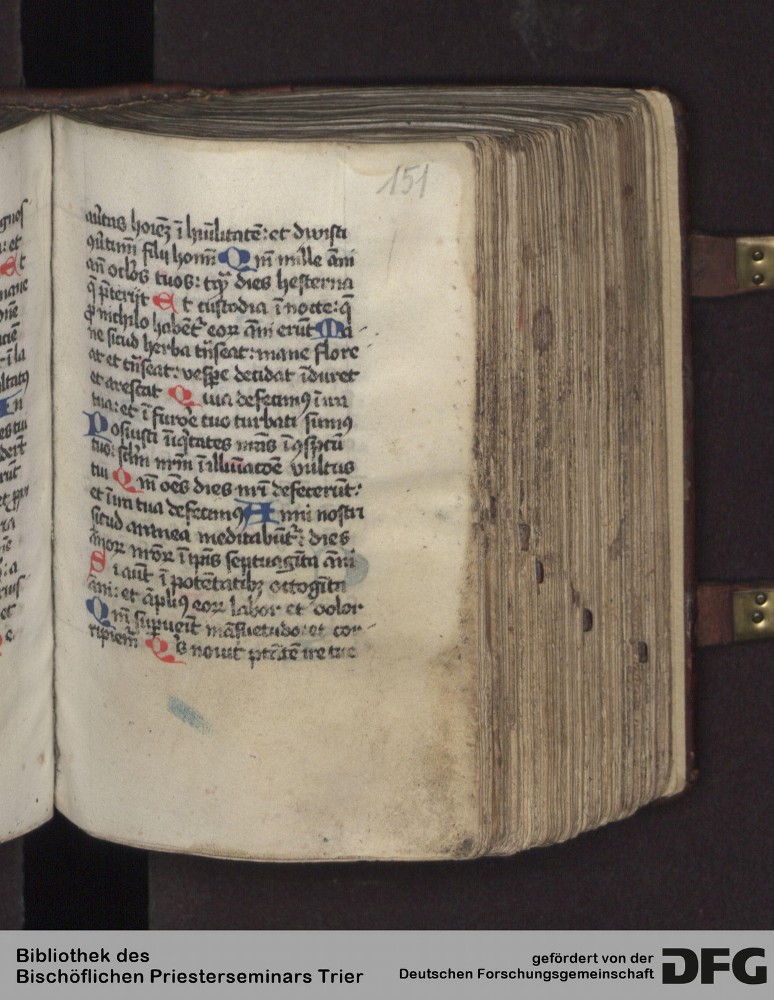 151
ũtas hoiez ĩ hũilitatẽ: et dixisti
ũtimĩ filij homĩ Qm̃ mille ãni
añ oclos tuos: tq̃ dies hesterna
q̃ p̃terijt Et custodia ĩ nocte: q̃
ꝓ nichilo habent̃ eoꝝ ãni erũt Ma
ne sicud herba tñseat: mane flore
at et tñseat: vesp̃e decidat ĩduret
et arescat Quia defecimꝰ ĩ ira
tua: et ĩ furore tuo turbati sumꝰ
Posuisti iĩqtates nr̃as ĩ ꝯspc̃tu
tuo: sclm̃ nr̃m ĩ illũĩacõe vultus
tui Qm̃ oẽs dies nr̃i defecerũt:
et ĩ ira tua defecimꝰ Anni nostri
sicud aranea meditabũt̃: dies
ãnoꝝ nr̃oꝝ ĩ ip̃is septuagĩta ãni
Si aũt ĩ potẽtatibꝫ octogĩta
ãni: et ãpliꝰ eoꝝ labor et dolor
Qm̃ sup̃ueit mãsuetudo: et cor
ripiem̃ Qs nouit ptãtẽ ire tue
Bibliothek des
Bischöflichen Priesterseminars Trier
gefördert von der
Deutschen Forschungsgemeinschaft
DFG